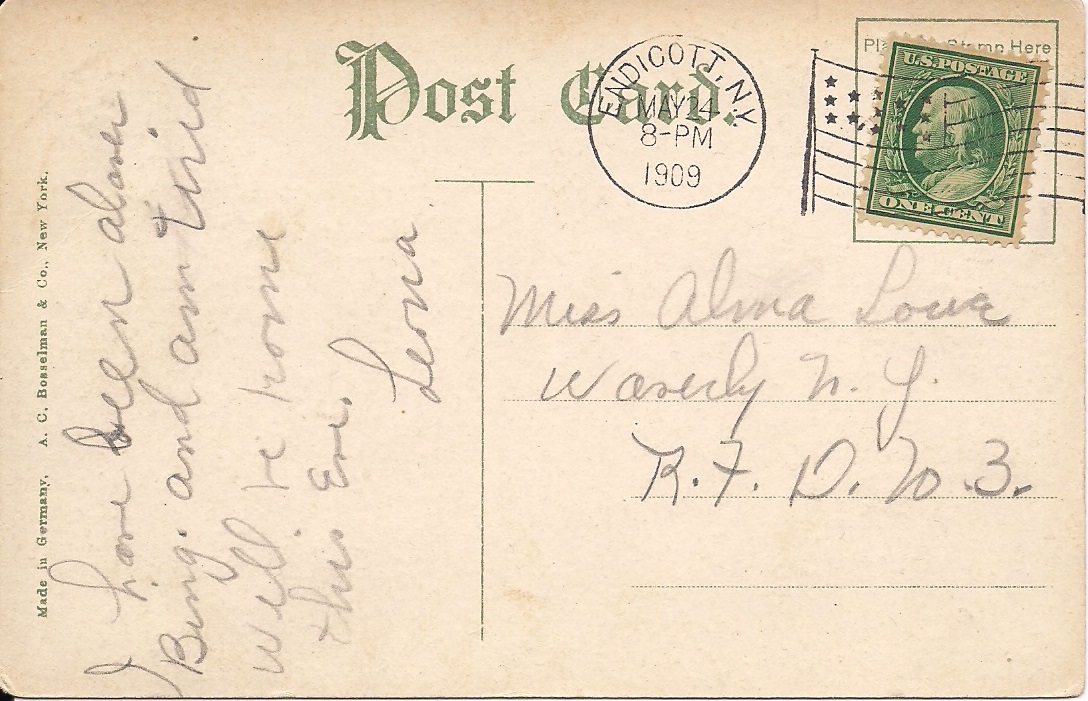 Post Card.
ENDICOTT, N.Y.
MAY 24
8-PM
1909
Place Stamp Here
U.S. POSTAGE
ONE CENT
Made in Germany. A. C. Bosselman & Co., New York.
I have been all over
Bing. and am tired
Will be home
this Eve.
Leona
Miss Alma Lowe
Waverly N. Y.
R. F. D. No. 3.